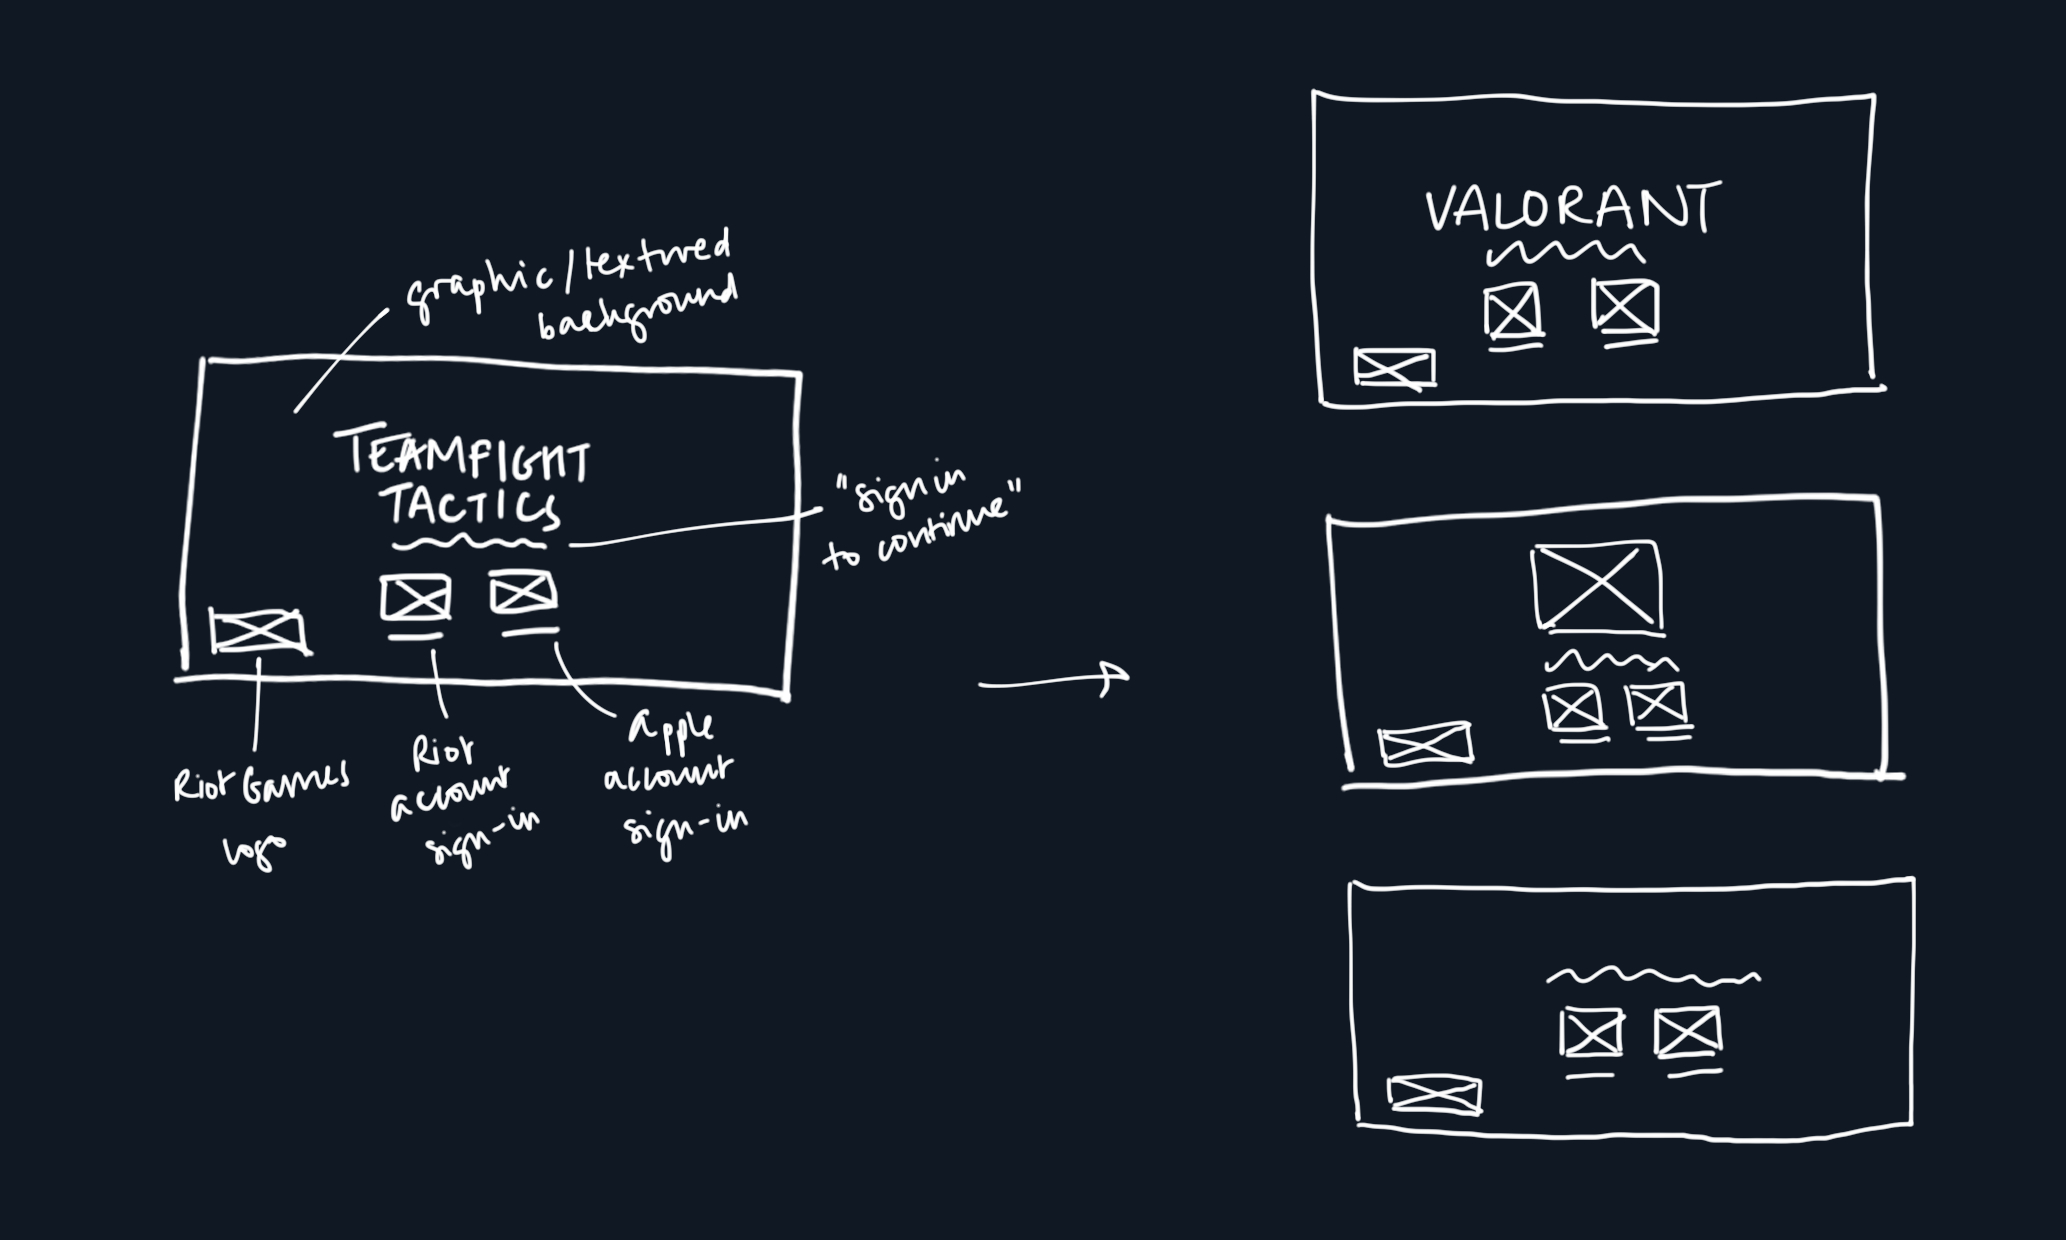 graphic/textured
background
TEAMFIGHT
TACTICS
"sign in
to continue"
Riot Games
logo
Riot
account
sign-in
apple
account
sign-in
VALORANT